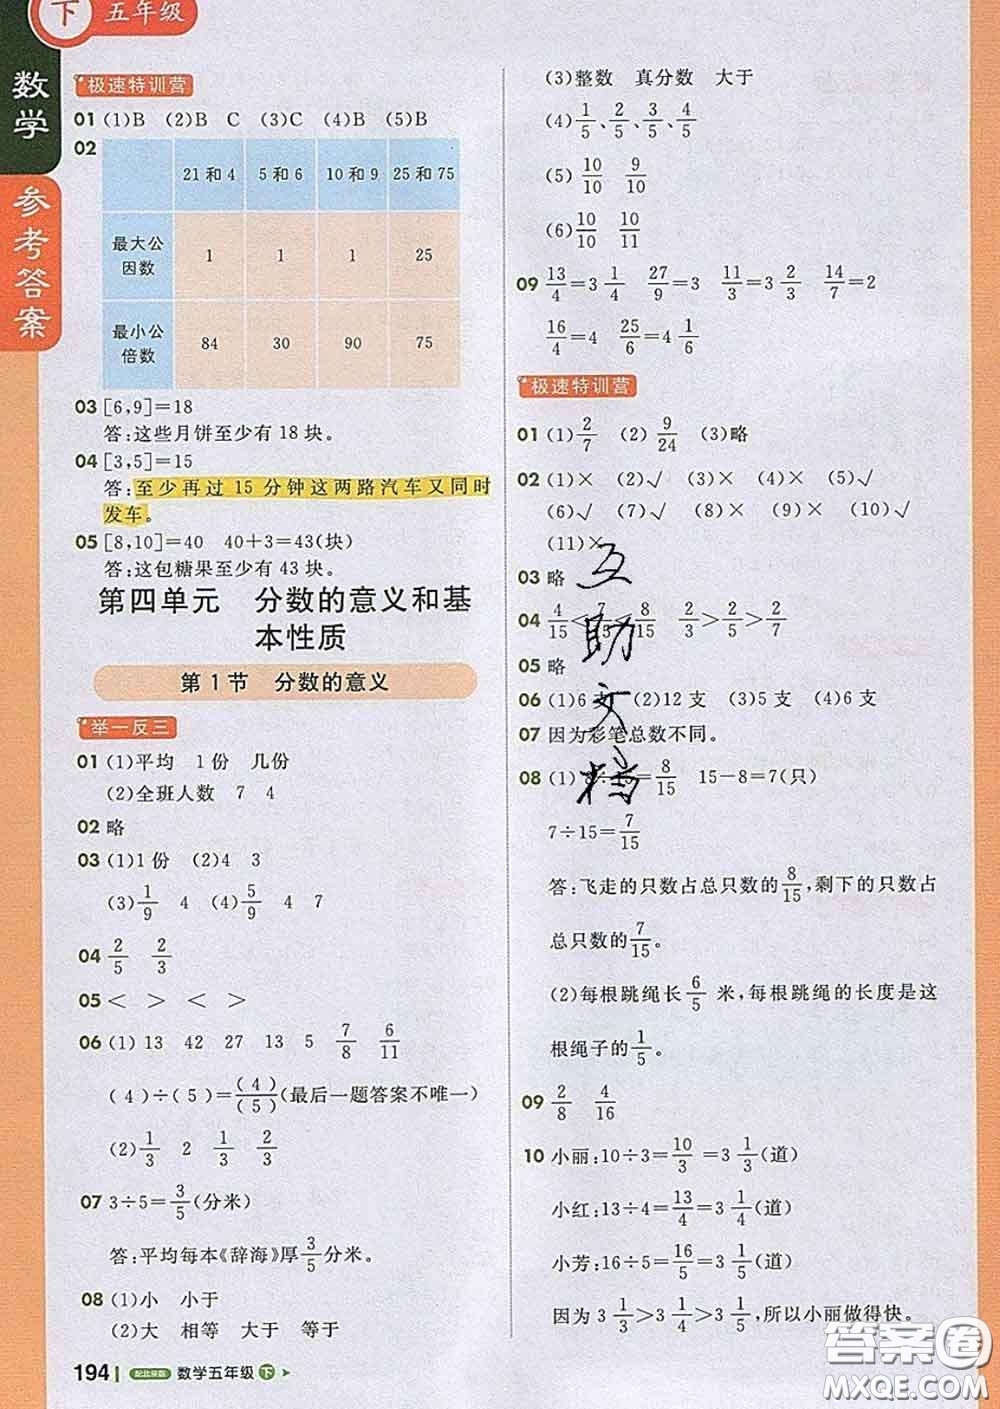 下 五年级
数学
参考答案
极速特训营
01 (1)B (2)B C (3)C (4)B (5)B
02
21 和 4 5 和 6 10 和 9 25 和 75
最大公因数 1 1 1 25
最小公倍数 84 30 90 75
03 [6,9]=18
答:这些月饼至少有 18 块。
04 [3,5]=15
答:至少再过 15 分钟这两路汽车又同时
发车。
05 [8,10]=40 40+3=43(块)
答:这包糖果至少有 43 块。
第四单元 分数的意义和基
本性质
第 1 节 分数的意义
举一反三
01 (1)平均 1 份 几份
(2)全班人数 7 4
02 略
03 (1)1 份 (2)4 3
(3)1/9 4 (4)5/9 4 7
04 2/5 2/3
05 < > < >
06 (1) 13 42 27 13 5 7/8 6/11
(4)÷(5)=(4)/(5)(最后一题答案不唯一)
(2)1/3 2 1/3 2/3
07 3÷5=3/5(分米)
答:平均每本《辞海》厚3/5分米。
08 (1)小 小于
(2)大 相等 大于 等于
(3)整数 真分数 大于
(4)1/5、2/5、3/5、4/5
(5)10/10 9/10
(6)10/10 10/11
09 13/4=3 1/4 27/9=3 11/3=3 2/3 14/7=2
16/4=4 25/6=4 1/6
极速特训营
01 (1)2/7 (2)9/24 (3)略
02 (1)× (2)√ (3)× (4)× (5)√
(6)√ (7)√ (8)× (9)× (10)√
(11)×
03 略
04 4/15<7/15<8/15 2/3>2/5>2/7
05 略
06 (1)6 支 (2)12 支 (3)5 支 (4)6 支
07 因为彩笔总数不同。
08 (1)8÷15=8/15 15-8=7(只)
7÷15=7/15
答:飞走的只数占总只数的8/15,剩下的只数占
总只数的7/15。
(2)每根跳绳长6/5 米,每根跳绳的长度是这
根绳子的1/5。
09 2/8 4/16
10 小丽:10÷3=10/3=3 1/3(道)
小红:13÷4=13/4=3 1/4(道)
小芳:16÷5=16/5=3 1/5(道)
因为 3 1/3>3 1/4>3 1/5,所以小丽做得快。
互助文档
194 配北京版 数学五年级 下
答案圈
MXQE.COM